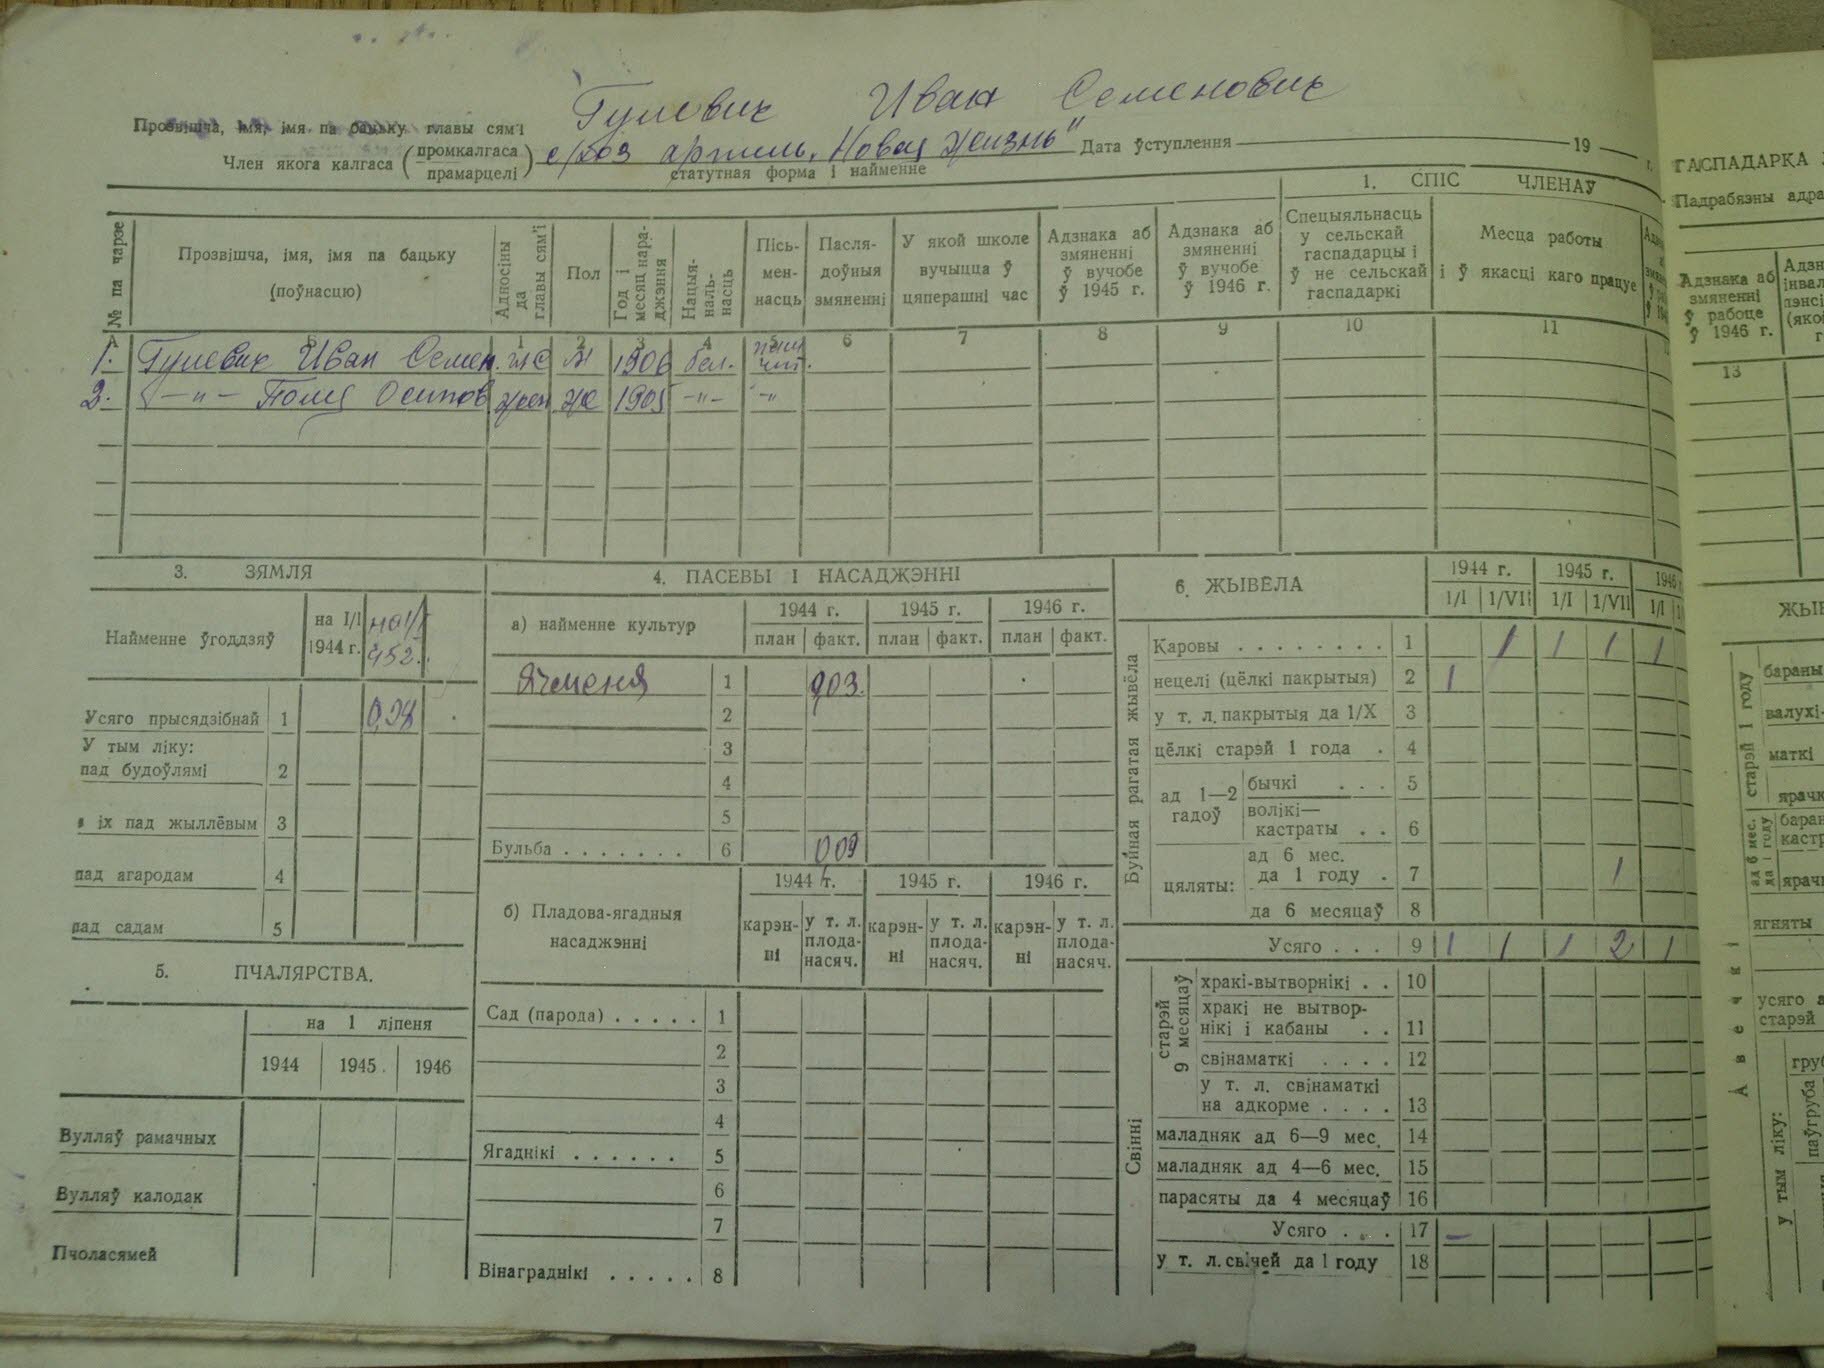 Гулевич Иван Семенович
Прозвішча, імя, імя па бацьку главы сям'і
Член якога калгаса (промкалгаса прамарцелі) с/хоз артель „Новая Жизнь" Дата ўступлення 19 г.
статутная форма і найменне
1. СПІС ЧЛЕНАЎ
№ па чарзе
Прозвішча, імя, імя па бацьку (поўнасцю)
Адносіны да главы сям'і
Пол
Год і месяц нараджэння
Нацыянальнасць
Пісьменнасць
Паслядоўныя змяненні
У якой школе вучыцца ў цяперашні час
Адзнака аб змяненні ў вучобе ў 1945 г.
Адзнака аб змяненні ў вучобе ў 1946 г.
Спецыяльнасць у сельскай гаспадарцы і ў не сельскай гаспадаркі
Месца работы і ў якасці каго працуе
А Б 1 2 3 4 5 6 7 8 9 10 11
1. Гулевич Иван Семен. г/с М 1906 бел.
2. —"— Поля Осипов жен ж 1905 —"— —"
3. ЗЯМЛЯ
Найменне ўгоддзяў
на I/I 1944 г.
на 1/I 452.
Усяго прысядзібнай 1 0,28
У тым ліку:
пад будоўлямі 2
з іх пад жыллёвым 3
пад агародам 4
пад садам 5
5. ПЧАЛЯРСТВА.
на 1 ліпеня
1944 1945 1946
Вулляў рамачных
Вулляў калодак
Пчоласямей
4. ПАСЕВЫ І НАСАДЖЭННІ
а) найменне культур
1944 г. 1945 г. 1946 г.
план факт. план факт. план факт.
Ячменя 1 0,03
2
3
4
5
Бульба . . . . . . . 6 0,09
б) Пладова-ягадныя насаджэнні
1944 г. 1945 г. 1946 г.
карэнні у т. л. плоданасяч. карэнні у т. л. плоданасяч. карэнні у т. л. плоданасяч.
Сад (парода) . . . . . 1
2
3
4
Ягаднікі . . . . . . 5
6
7
Вінаграднікі . . . . . 8
6. ЖЫВЁЛА
1944 г. 1945 г. 1946
1/I 1/VII 1/I 1/VII 1/I
Буйная рагатая жывёла
Каровы . . . . . . . . 1 1 1 1 1
нецелі (цёлкі пакрытыя) 2 1
у т. л. пакрытыя да 1/X 3
цёлкі старэй 1 года . 4
ад 1—2 гадоў
бычкі . . . 5
волікі—кастраты . . 6
цяляты:
ад 6 мес. да 1 году . 7 1
да 6 месяцаў 8
Усяго . . . 9 1 1 1 2 1
Свінні
старэй 9 месяцаў
хракі-вытворнікі . . 10
хракі не вытворнікі і кабаны . . 11
свінаматкі . . . . 12
у т. л. свінаматкі на адкорме . . . . 13
маладняк ад 6—9 мес. 14
маладняк ад 4—6 мес. 15
парасяты да 4 месяцаў 16
Усяго . . . 17 –
у т. л. свіней да 1 году 18
ГАСПАДАРКА
Падрабязны адра
Адзнака аб змяненні ў рабоце ў 1946 г.
13
Авечкі
старэй 1 году
бараны
валухі-
маткі
ад 6 мес. да 1 году
ягняты
усяго
старэй
у тым ліку: